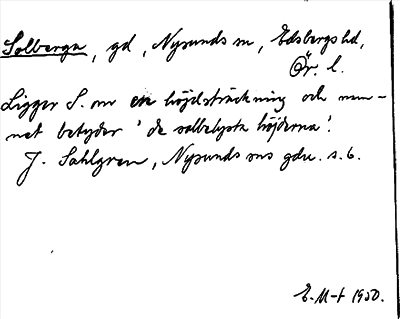 Solberga, gd, Nysunds sn, Edsbergs hd,
Ör. l.
Ligger S. om en höjdsträckning och nam-
net betyder 'de solbelysta höjderna'.
J. Sahlgren, Nysunds sns gdn. s. 6.
E. M-t 1950.